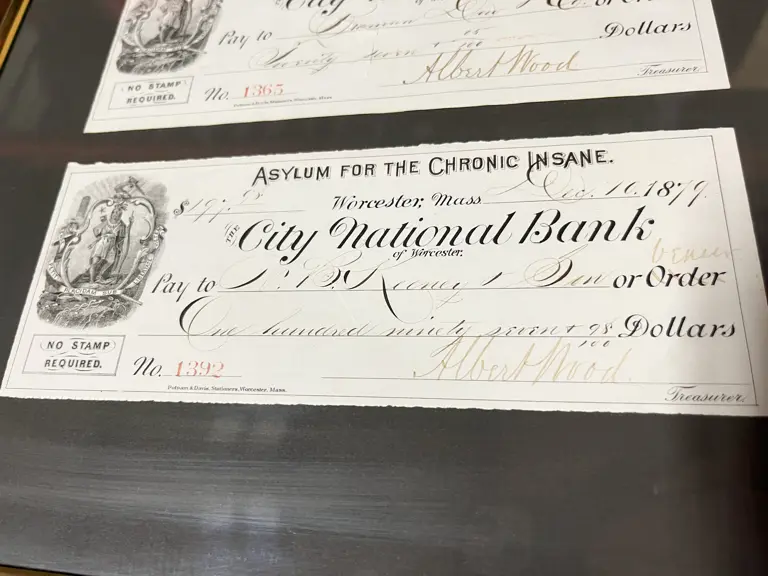 City
Pay to
Dollars
Seventy seven + 18/100
Albert Wood
Treasurer.
NO STAMP
REQUIRED.
No. 1365
Putnam & Davis, Stationers, Worcester, Mass.
ASYLUM FOR THE CHRONIC INSANE.
$197.98 Worcester, Mass. Dec. 16. 1879.
THE City National Bank
of Worcester.
Pay to N. B. Keeney & Son or Order
One hundred ninety seven + 98/100 Dollars
Albert Wood
Treasurer.
NO STAMP
REQUIRED.
No. 1392
Putnam & Davis, Stationers, Worcester, Mass.